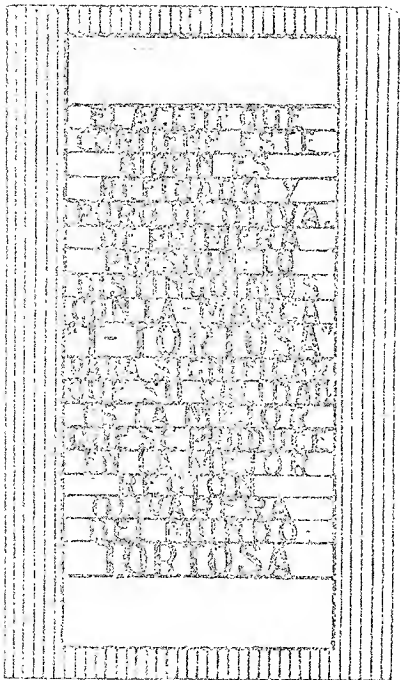 EL ACEITE QUE
CONTIENE ESTE
BIDON ES
LEGITIMO Y
PURO DE OLIVA,
DE PRIMERA
PRESION. LO
DISTINGUIMOS
CON LA MARCA
"TORTOSA"
PARA SIGNIFICAR
QUE SU CALIDAD
ES LA MEJOR
QUE SE PRODUCE
EN LA MEJOR
REGION
OLIVARERA
DEL MUNDO:
TORTOSA